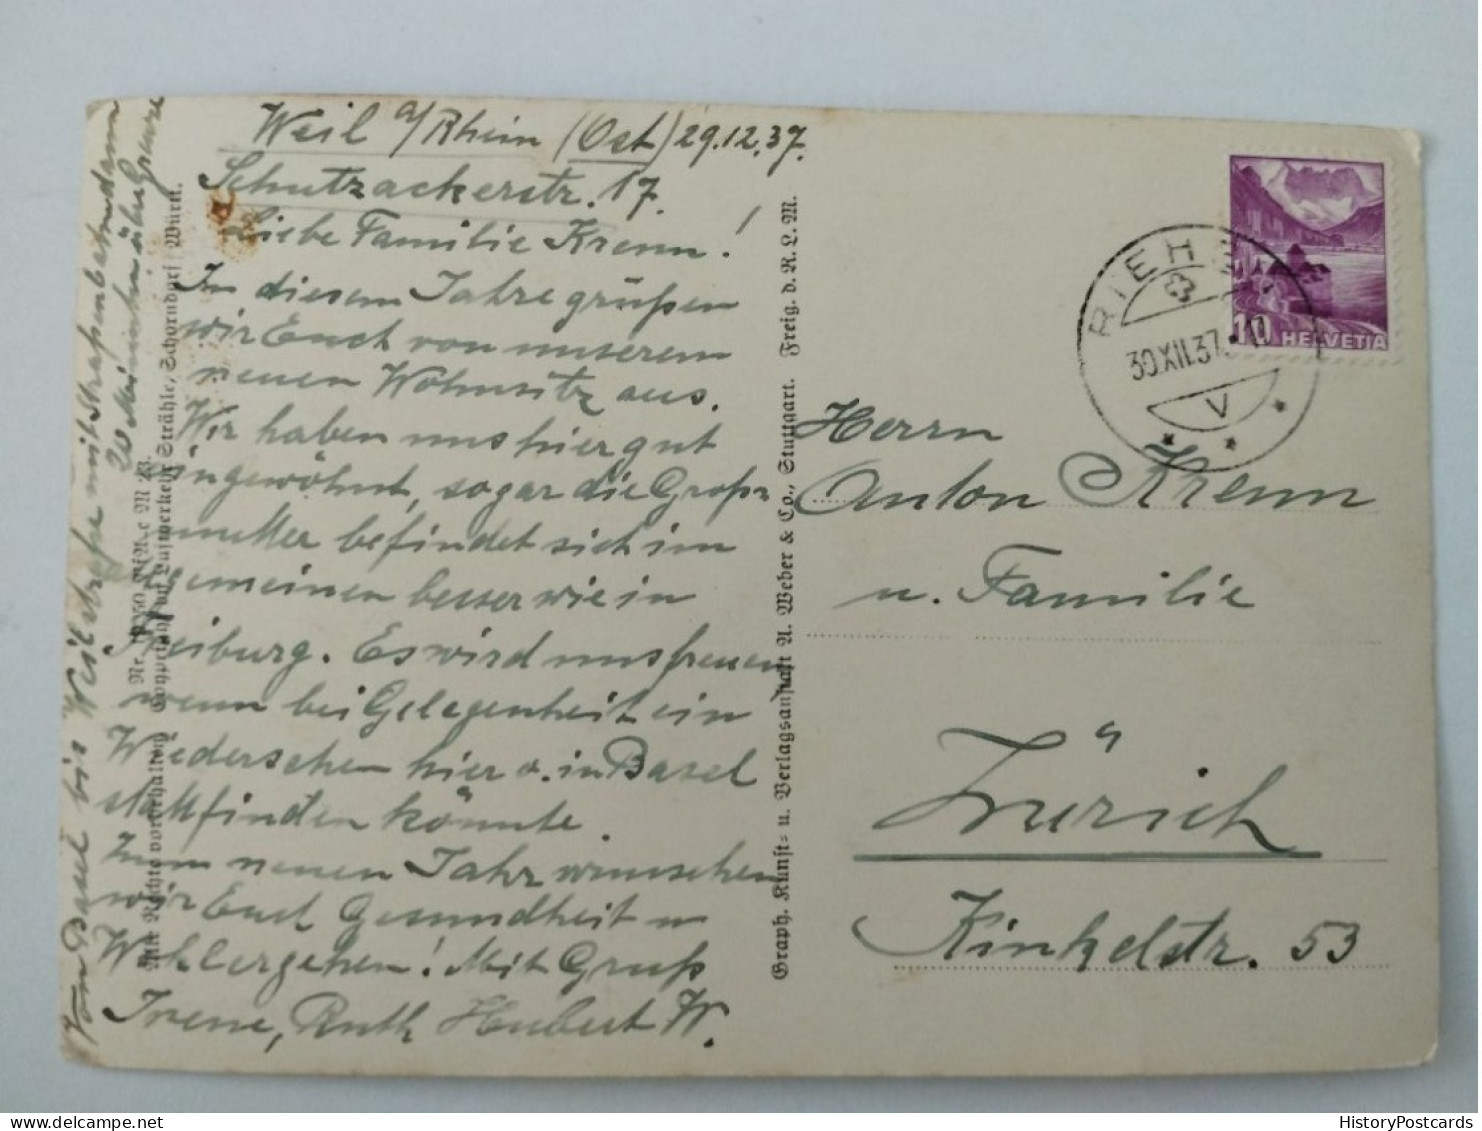 Weil a/Rhein (Ost) 29.12.37.
Schutzackerstr. 17.
Liebe Familie Krenn!
In diesem Jahre grüßen
wir Euch von unserem
neuen Wohnsitz aus.
Wir haben uns hier gut
eingewöhnt, sogar die Groß=
mutter befindet sich im
allgemeinen besser wie in
Freiburg. Es wird uns freuen
wenn bei Gelegenheit ein
Wiedersehen hier o. in Basel
stattfinden könnte.
Zum neuen Jahr wünschen
wir Euch Gesundheit u
Wohlergehen! Mit Gruß
Irene, Ruth Hubert W.
Von Basel bis Weilstraße mit Straßenbahn dann
20 Minuten über Grenze
Mit Rechte vorbehalten
Schorndorf / Württ.
Graph. Kunst= u. Verlagsanstalt A. Weber & Co., Stuttgart. Freig. d. R. L. M.
RIEHEN
30.XII.37
V
10 HELVETIA
Herrn
Anton Krenn
u. Familie
Zürich
Kinkelstr. 53
HistoryPostcards.com